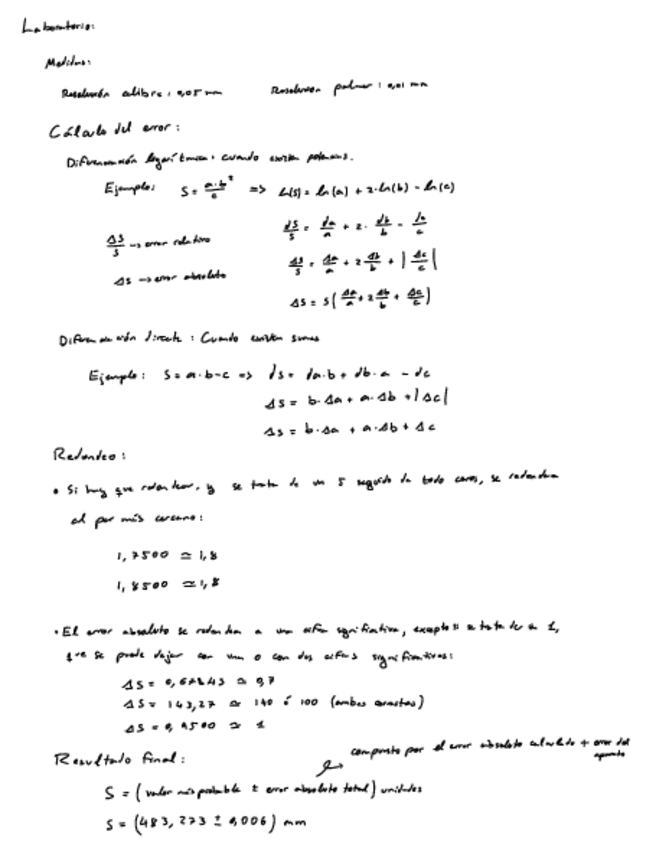 Laboratorio:
Medidas:
Resolución calibre: 0,05 mm Resolución palmer: 0,01 mm
Cálculo del error:
Diferenciación logarítmica: cuando existen potencias.
Ejemplo: S = a·b²/c => ln(S) = ln(a) + 2·ln(b) - ln(c)
dS/S = da/a + 2·db/b - dc/c
ΔS/S → error relativo
ΔS/S = Δa/a + 2Δb/b + |Δc/c|
ΔS → error absoluto
ΔS = S(Δa/a + 2Δb/b + Δc/c)
Diferenciación directa: Cuando existen sumas
Ejemplo: S = a·b-c => dS = da·b + db·a - dc
ΔS = b·Δa + a·Δb + |Δc|
ΔS = b·Δa + a·Δb + Δc
Redondeo:
• Si hay que redondear, y se trata de un 5 seguido de todo ceros, se redondea
al par más cercano:
1,7500 ≃ 1,8
1,8500 ≃ 1,8
• El error absoluto se redondea a una cifra significativa, excepto si se trata de un 1,
que se puede dejar con una o con dos cifras significativas:
ΔS = 0,67843 ≃ 0,7
ΔS = 143,27 ≃ 140 ó 100 (ambas correctas)
ΔS = 0,9500 ≃ 1
Resultado final:
compuesto por el error absoluto calculado + error del
aparato
S = (valor más probable ± error absoluto total) unidades
S = (483,273 ± 0,006) mm